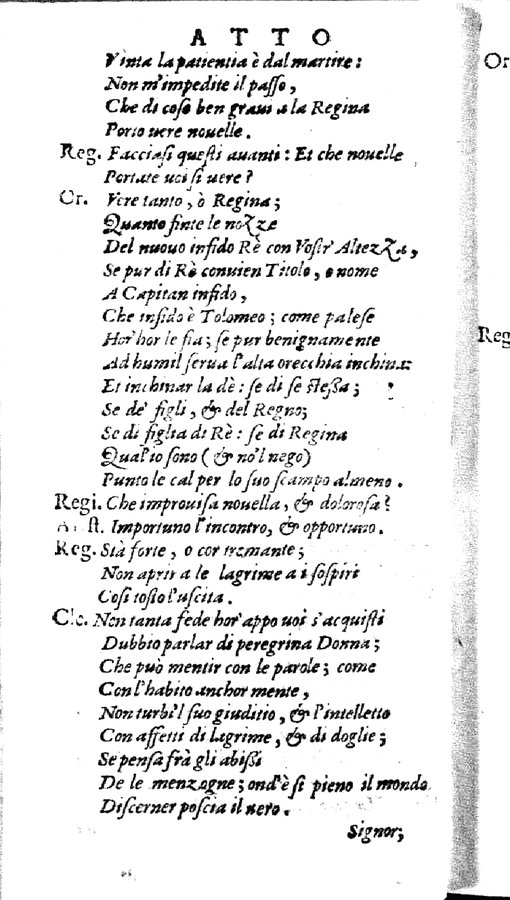 ATTO
Vinta la patientia è dal martire:
Non m'impedite il passo,
Che di cose ben graui a la Regina
Porto uere nouelle.
Reg. Facciasi questi auanti: Et che nouelle
Portate uoi sì uere?
Or. Vere tanto, ò Regina;
Quanto finte le nozze
Del nuouo infido Rè con Vostr' Altezza,
Se pur di Rè conuien Titolo, o nome
A Capitan infido,
Che infido è Tolomeo; come palese
Hor'hor le fia; se pur benignamente
Ad humil serua l'alta orecchia inchina:
Et inchinar la dè: se di se stessa;
Se de' figli, & del Regno;
Se di figlia di Rè: se di Regina
Qual'io sono (& no'l nego)
Punto le cal per lo suo scampo almeno.
Regi. Che improuisa nouella, & dolorosa?
Arist. Importuno l'incontro, & opportuno.
Reg. Stà forte, o cor tremante;
Non aprir a le lagrime a i sospiri
Così tosto l'uscita.
Cle. Non tanta fede hor'appo uoi s'acquisti
Dubbio parlar di peregrina Donna;
Che può mentir con le parole; come
Con l'habito anchor mente,
Non turbi'l suo giuditio, & l'intelletto
Con affetti di lagrime, & di doglie;
Se pensa frà gli abissi
De le menzogne; ond'è sì pieno il mondo
Discerner poscia il uero.
Signor;
Or
Reg